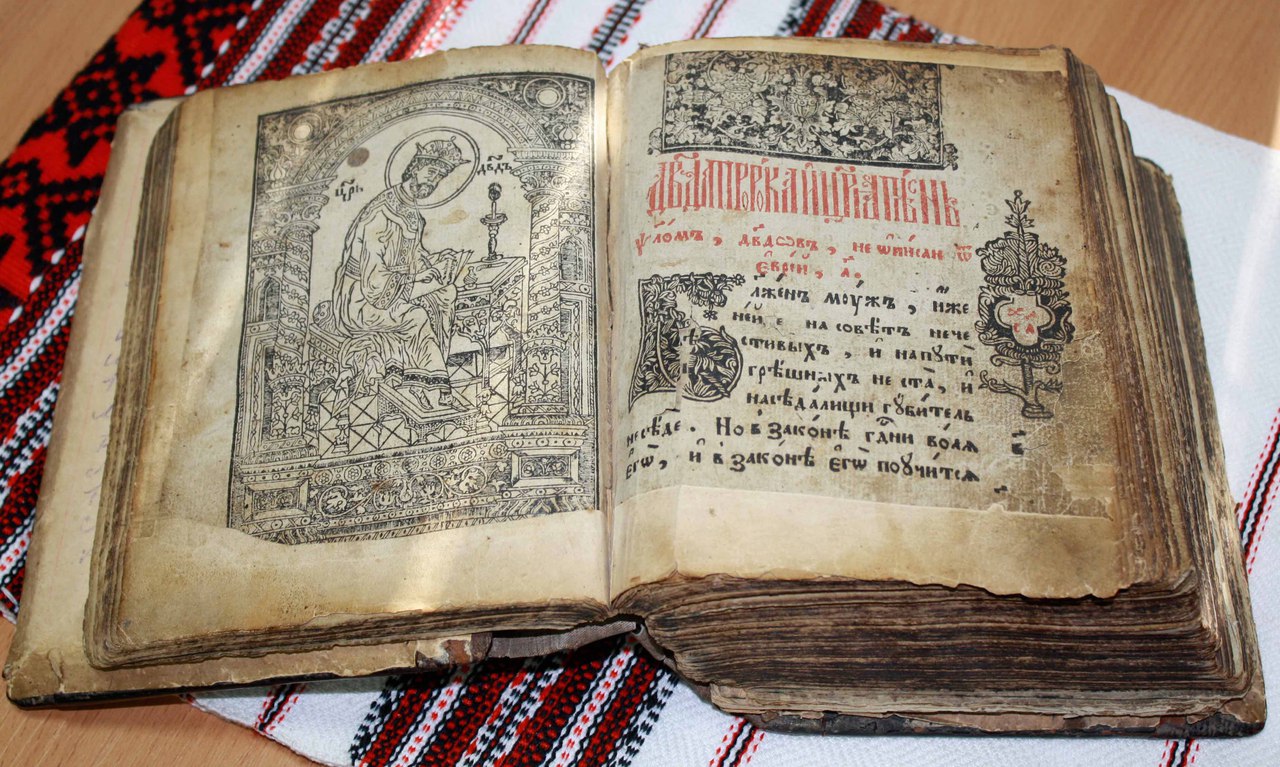 цр҃ь
дв҃дъ
дв҃да прⷪ҇рока и цр҃ѧ пѣснь
ѱало́мъ , дв҃дѡвъ , не ѡ҆пи́санъ ѿ
є҆врє́й , а҃ .
лже́нъ моу́жъ , и҆́же
не и́де на совѣ́тъ нече
сти́выхъ , и҆ на пꙋти́
грѣ́шныхъ не ста̀ , и҆
на сѣда́лищи гꙋби́тель
не сѣ́де . Но в̾зако́нѣ гдⷭ҇ни во́лѧ
є҆гѡ̀ , и҆ в̾зако́нѣ є҆гѡ̀ поꙋчи́тсѧ